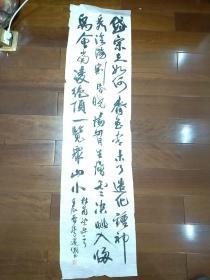 岱宗夫如何齊魯青未了造化鍾神
秀陰陽割昏曉蕩胸生層雲決眥入歸
鳥會當凌絕頂一覽衆山小
杜甫望岳